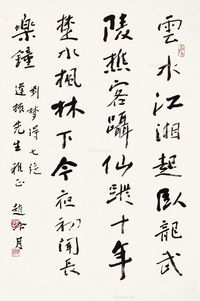 雲水江湘起臥龍武
陵樵客躡仙蹤十年
楚水楓林下今夜初聞長
樂鐘
劉夢得七絕
先生雅正
趙冷月